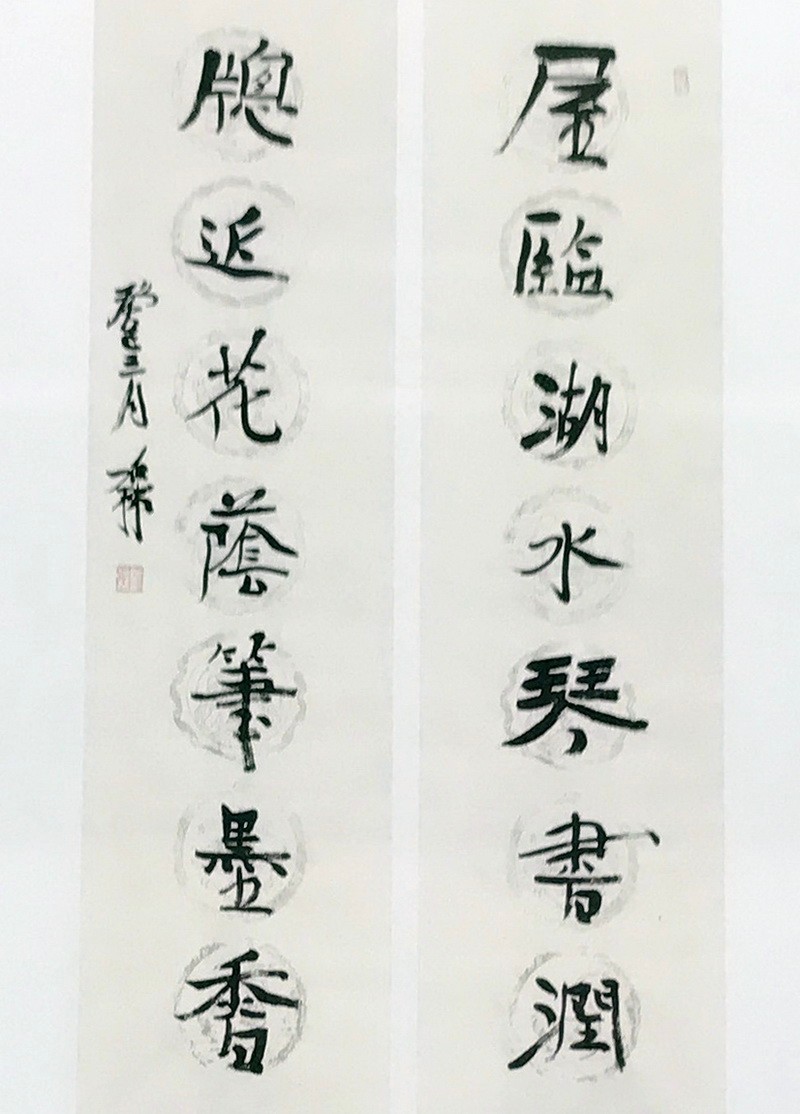 屋臨湖水琴書潤
牕近花蔭筆墨香
三月